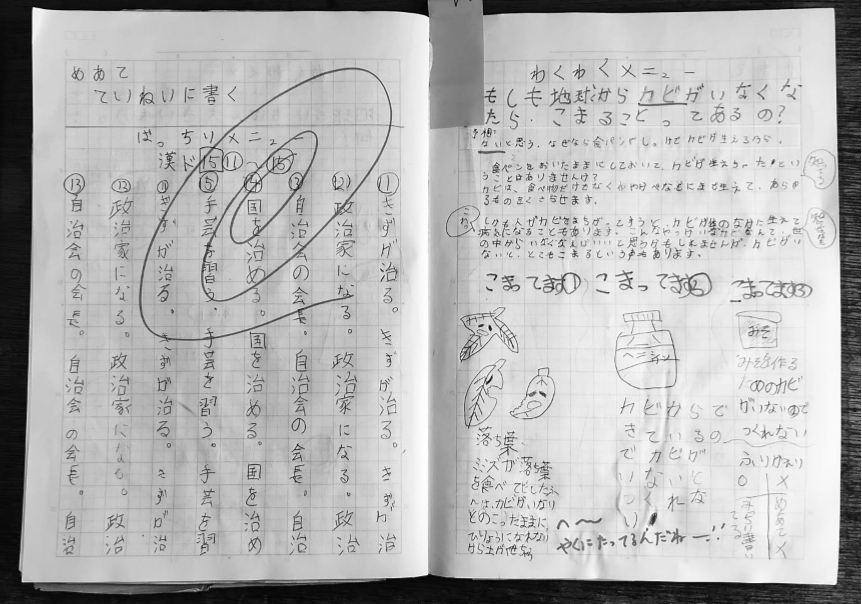 めあて
ていねいに書く
ばっちりメニュー
漢ド15 11〜15
⑪きずが治る。きずが治る。きずが治
⑫政治家になる。政治家になる。政治
⑬自治会の会長。自治会の会長。自治
⑭国を治める。国を治める。国を治め
⑮手芸を習う。手芸を習う。手芸を習
⑪きずが治る。きずが治る。きずが治
⑫政治家になる。政治家になる。政治
⑬自治会の会長。自治会の会長。自治
わくわくメニュー
もしも地球からカビがいなくな
たら、こまることってあるの?
予想
ないと思う。なぜなら食パンと
食パンをおいたままにしておいて、カビが生えちゃったとい
うことはありませんか?
カビは、食べ物だけでなく
るものをくさらせます。
病気になることもあります。こんなやっかいなカビなんて、世
の中からいなくなればいいと思うかもしれませんが、カビがい
ないと、とてもこまるという声もあります。
こまってます① こまってます② こまってます③
落ち葉
ミミズが落ち葉
を食べて
カビがいない
とのこったままに
ペニシリン
カビからで
きているの
でカビが
いないと
つくれな
い
みそ
みそを作る
ためのカビ
がいないので
つくれない
ふりかえり
へ〜
やくにたってるんだねー!!